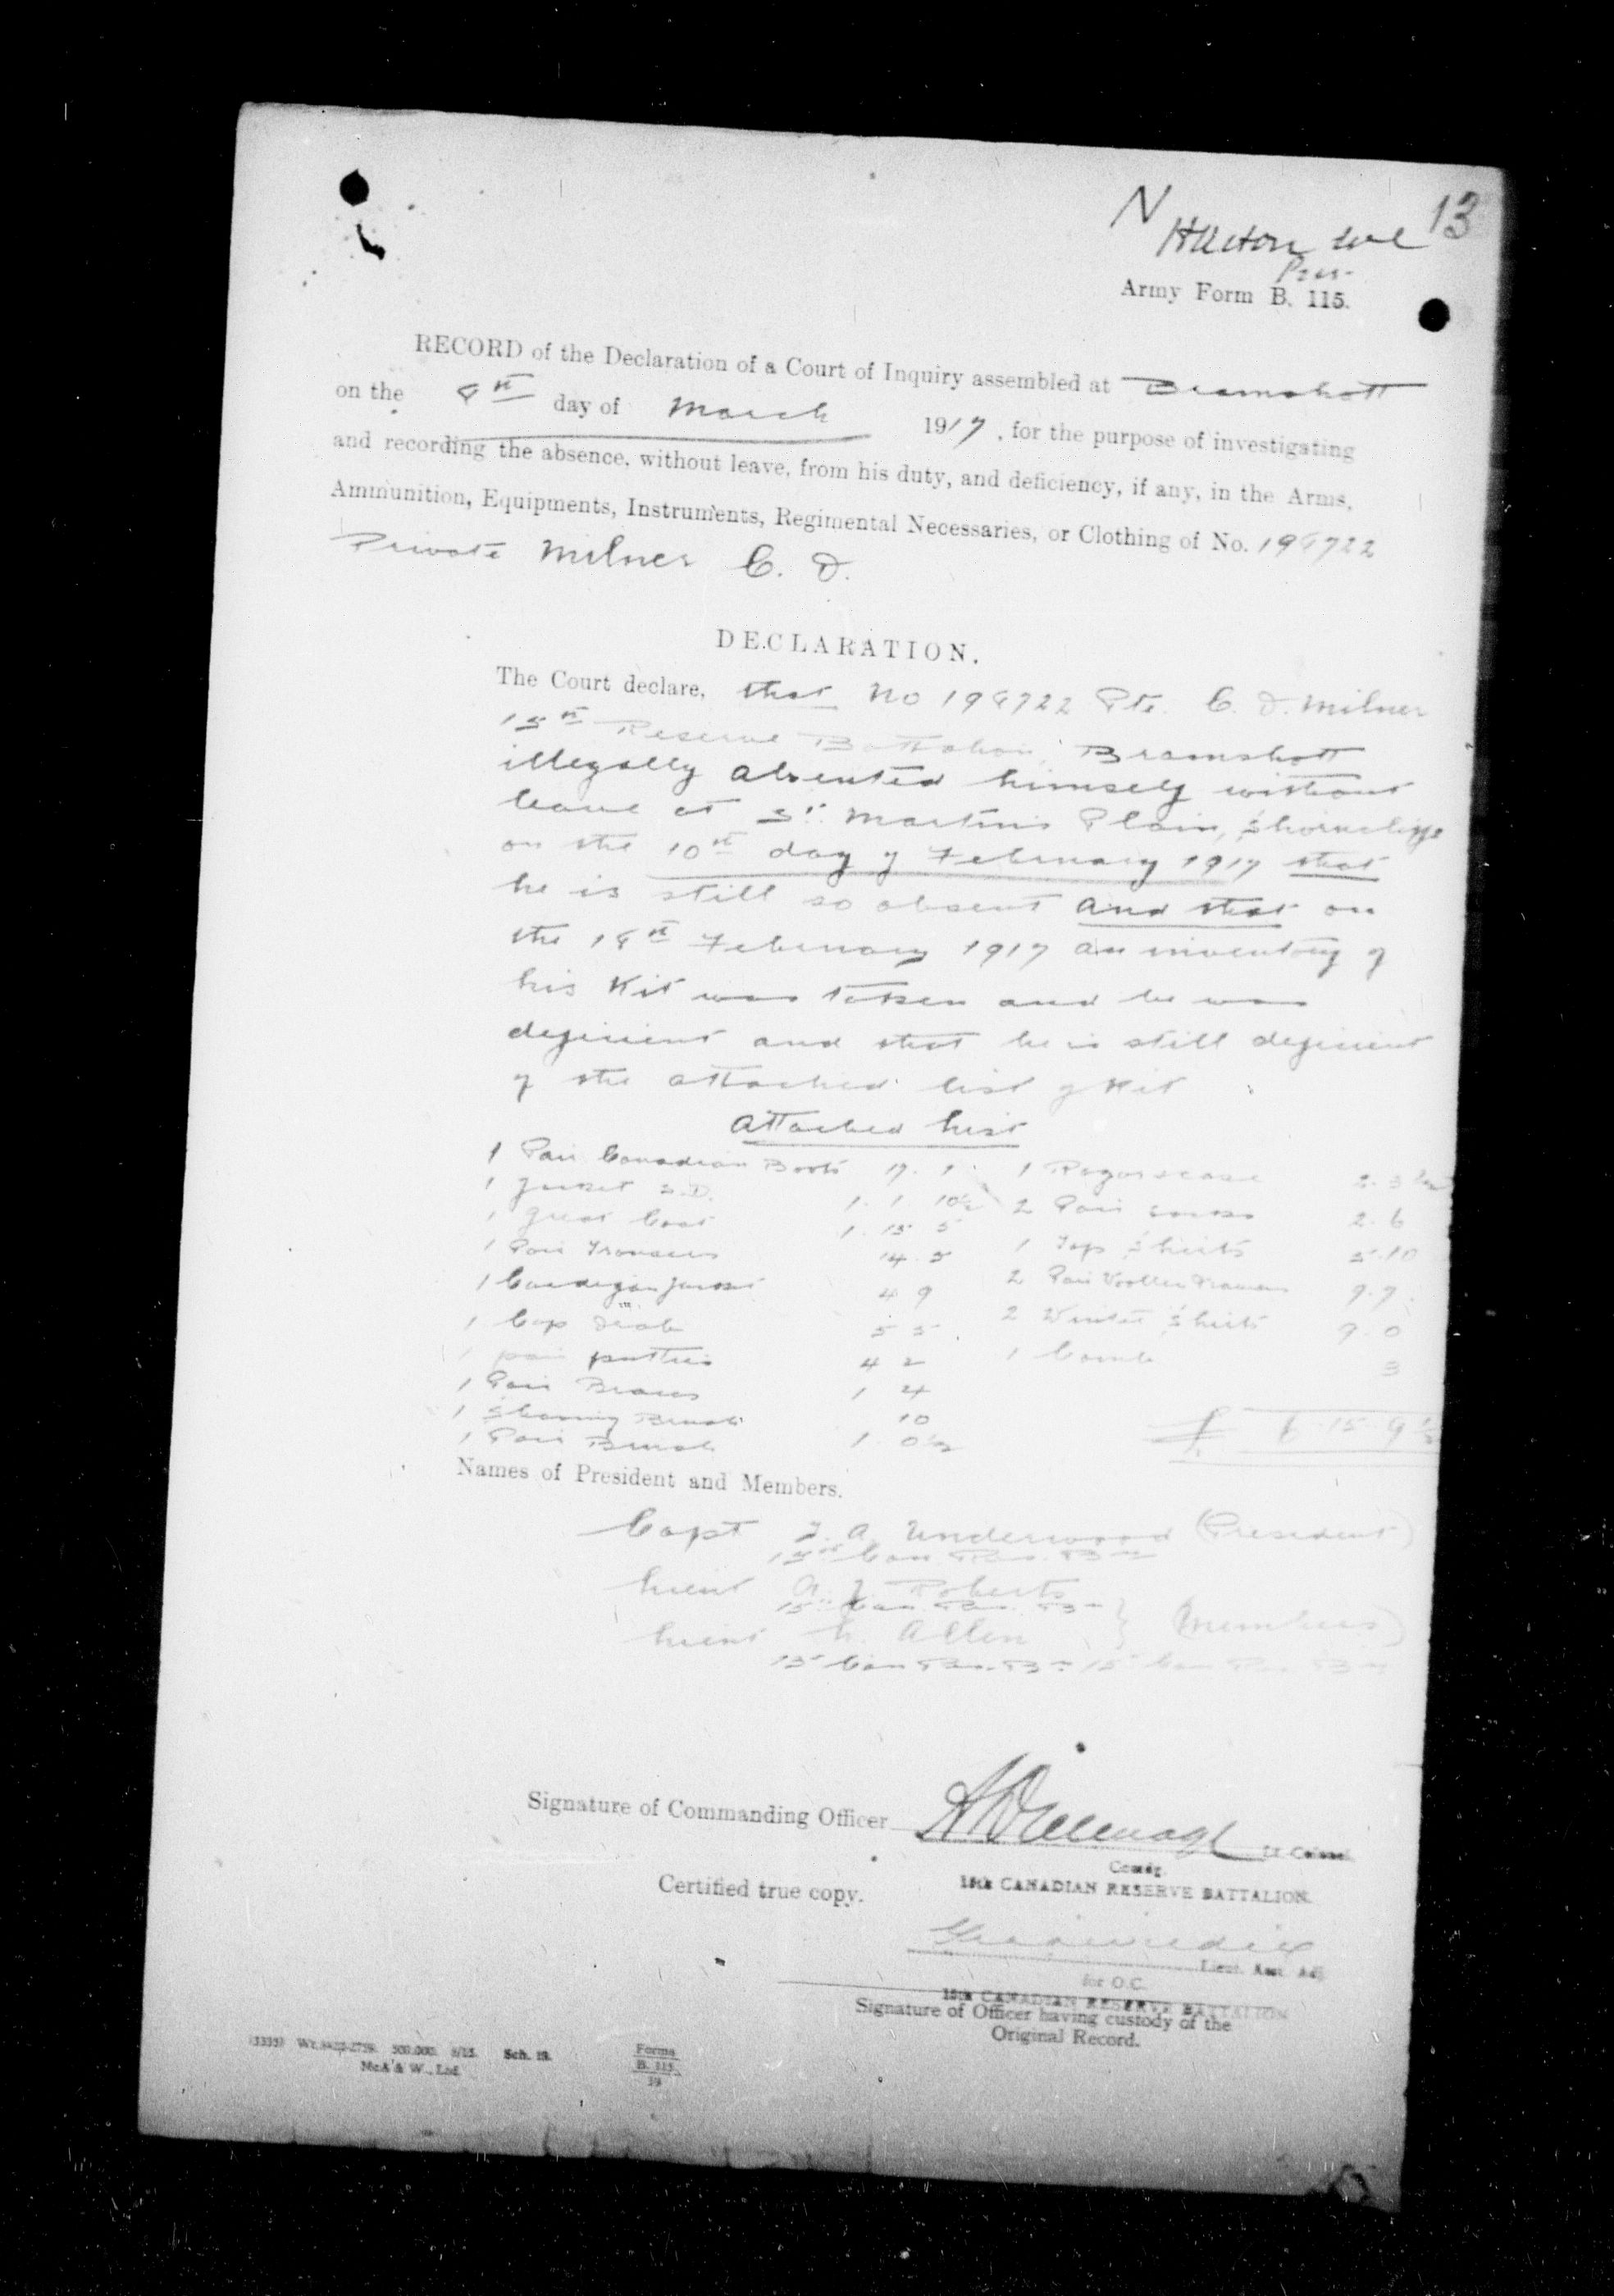 N
13
Army Form B. 115.
RECORD of the Declaration of a Court of Inquiry assembled at Bramshott
on the 8th day of March 1917, for the purpose of investigating
and recording the absence, without leave, from his duty, and deficiency, if any, in the Arms,
Ammunition, Equipments, Instruments, Regimental Necessaries, or Clothing of No. 198722
Private Milner C. D.
DECLARATION.
The Court declare, that No 198722 Pte. C. D. Milner
15th Reserve Battalion, Bramshott
illegally absented himself without
leave at St. Martins Plain, Shorncliffe
on the 10th day of February 1917 that
he is still so absent and that on
the 18th February 1917 an inventory of
his Kit was taken and he was
deficient and that he is still deficient
of the attached list of Kit
Attached List
1 Pair Canadian Boots 17. 1 1 Razor & case 2. 3 1/2
1 Jacket S.D. 1. 1 10½ 2 Pair socks 2. 6
1 Great Coat 1. 15 5 1 Top Shirts 5. 10
1 Pair Trousers 14. 5 2 Pair Woollen Drawers 9. 7
1 Cardigan Jacket 4 9 2 Winter Shirts 9. 0
1 Cap Drab 5 5 1 Comb 3
1 pair puttees 4 2
1 Pair Braces 1 4
1 Shaving Brush 10 £ 6. 15. 9 ½
1 Pair Brush 1. 0½
Names of President and Members.
Capt J. A. Underwood (President)
15th Can. Res. Bn
Lieut A. J. Roberts
15th Can. Res. Bn } (Members)
Lieut L. Allen
15 Can Res. Bn 15 Can Res Bn
Signature of Commanding Officer Lt Colonel.
Comdg.
15th CANADIAN RESERVE BATTALION.
Certified true copy.
Lieut. Asst. Adj.
for O.C.
15th CANADIAN RESERVE BATTALION
Signature of Officer having custody of the
Original Record.
500,000. Sch. 19. Forms
McA & W., Ltd. B. 115